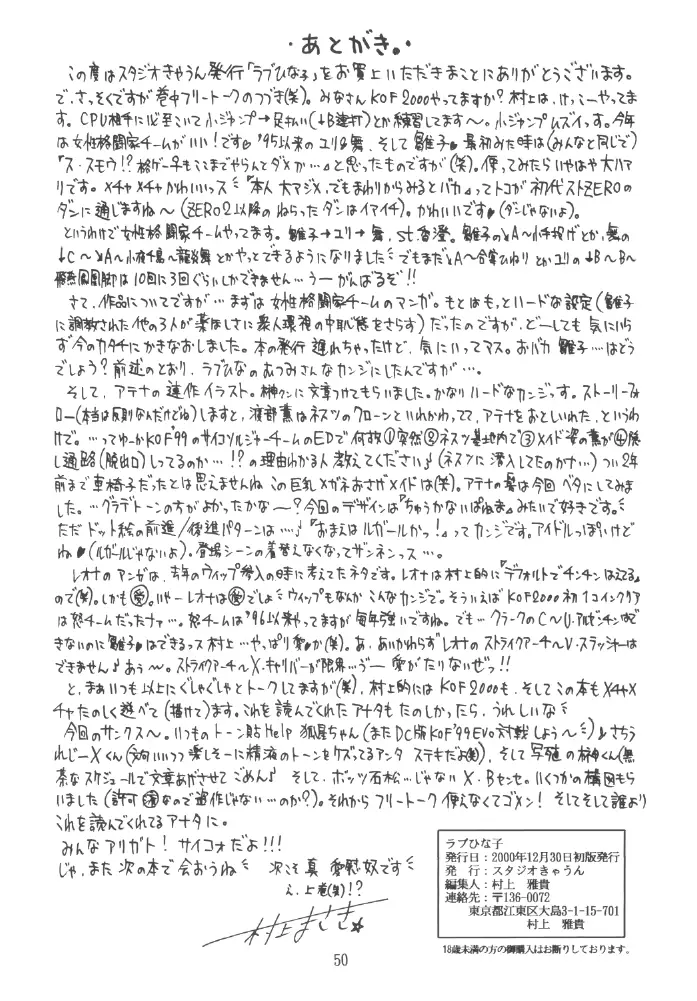 ・あとがき。・
この度はスタジオきゃうん発行「ラブひな子」をお買上いただきまことにありがとうございます。
で、さっそくですが巻中フリートークのつづき(笑)。みなさんKOF2000やってますか?村上は、けっこーやってま
す。CPU相手に必至こいて小ジャンプ→足払い(↓B連打)とか練習してます〜。小ジャンプムズイっす。今年
は女性格闘家チームがいい!です♥'95以来のユリ&舞、そして雛子♥最初みた時は(みんなと同じで)
『ス・スモウ!?格ゲーもここまでやらんとダメか…』と思ったものですが(笑)。使ってみたらいやはや大ハマ
リです。メチャメチャかわいいっス『本人大マジメ、でもまわりからみるとバカ』ってトコが初代ストZEROの
ダンに通じますね〜(ZERO2以降のねらったダンはイマイチ)。かわいいです♥(ダンじゃないよ)。
というわけで女性格闘家チームやってます。雛子→ユリ→舞、st.香澄。雛子の→A〜小手投げとか、舞の
↓C〜→A〜小夜千鳥〜龍炎舞とかやっとできるようになりました でもまだ→A〜合掌ひねりとかユリの↓B〜B〜
飛燕鳳凰脚は10回に3回ぐらいしかできません…うーがんばるぞ!!
さて、作品についてですが…まずは女性格闘家チームのマンガ。もとはもっとハードな設定(雛子
に調教された他の3人が薬ほしさに衆人環視の中恥態をさらす)だったのですが、どーしても気にいら
ず今のカタチにかきなおしました。本の発行遅れちゃったけど、気にいってマス。おバカ雛子…はどう
でしょう?前述のとおり、ラブひなのあつみさんなカンジにしたんですが…。
そして、アテナの連作イラスト。榊クンに文章つけてもらいました。かなりハードなカンジっす。ストーリーフォ
ロー(本当は反則なんだけどね)しますと、渡部薫はネスツのクローンといれかわってて、アテナをおといれた、というわ
けで。…ってゆーかKOF'99のサイコソルジャーチームのEDで何故①突然②ネスツ基地内で③メイド姿の薫が④隠
し通路(脱出口)しってるのか…!?の理由わかる人教えてください♪(ネスツに潜入してたのかナ…)つい2年
前まで車椅子だったとは思えませんねこの巨乳メガネおさげメイドは(笑)。アテナの髪は今回ベタにしてみま
した。…グラデトーンの方がよかったかな〜?今回のデザインは『ちゅうかないぱねま』みたいで好きです。
ただドット絵の前進/後進パターンは…♪『おまえはルガールかっ!』ってカンジです。アイドルっぽいけど
ね♥(ルガールじゃないよ)。登場シーンの着替えなくなってザンネンっス…。
レオナのマンガは、去年のウィップ参入の時に考えてたネタです。レオナは村上的に『デフォルトでチンチンはえてる』
ので(笑)。しかも
でしょ ウィップもなんかこんなカンジで。そういえばKOF2000初1コインクリア
は怒チームだったナァ…。怒チームは'96以来やってますが毎年強いですね。でも…クラークのC〜U.アルゼンチンはで
きないのに雛子♥はできるっス村上…やっぱり愛♥か(笑)。あ、あいかわらずレオナのストライクアーチ〜V・スラッシャーは
できません♪あぅ〜。ストライクアーチ〜X.キャリバーが限界…ゔー愛がたりないぜっ!!
と、まぁいつも以上にぐしゃぐしゃとトークしてますが(笑)、村上的にはKOF2000も、そしてこの本もメチャメ
チャたのしく遊べて(描けて)ます。これを読んでくれたアナタもたのしかったら、うれしいな
今回のサンクス〜。いつものトーン貼Help狐呂ちゃん(またDC版KOF'99Evo対戦しよう〜)♪さちう
れじーXくん(文句いいつつ楽しそーに精液のトーンをケズってるアンタステキだよ(笑)、そして写植の榊クん(無
茶なスケジュールで文章あげさせてごめん♪そして、ボッツ石松…じゃないX・Bセンセ。いくつかの構図もら
いました(許可済なので盗作じゃない…のか?)。それからフリートーク使えなくてゴメン!そしてそして誰より
これを読んでくれてるアナタに。
みんなアリガト!サイコォだよ!!!
じゃ、また次の本で会おうね 次こそ真愛慰奴です
え、上巻(笑)!?
村上まさき☆
ラブひな子
発行日:2000年12月30日初版発行
発 行:スタジオきゃうん
編集人:村上 雅貴
連絡先:〒136-0072
東京都江東区大島3-1-15-701
村上 雅貴
18歳未満の方の御購入はお断りしております。
50